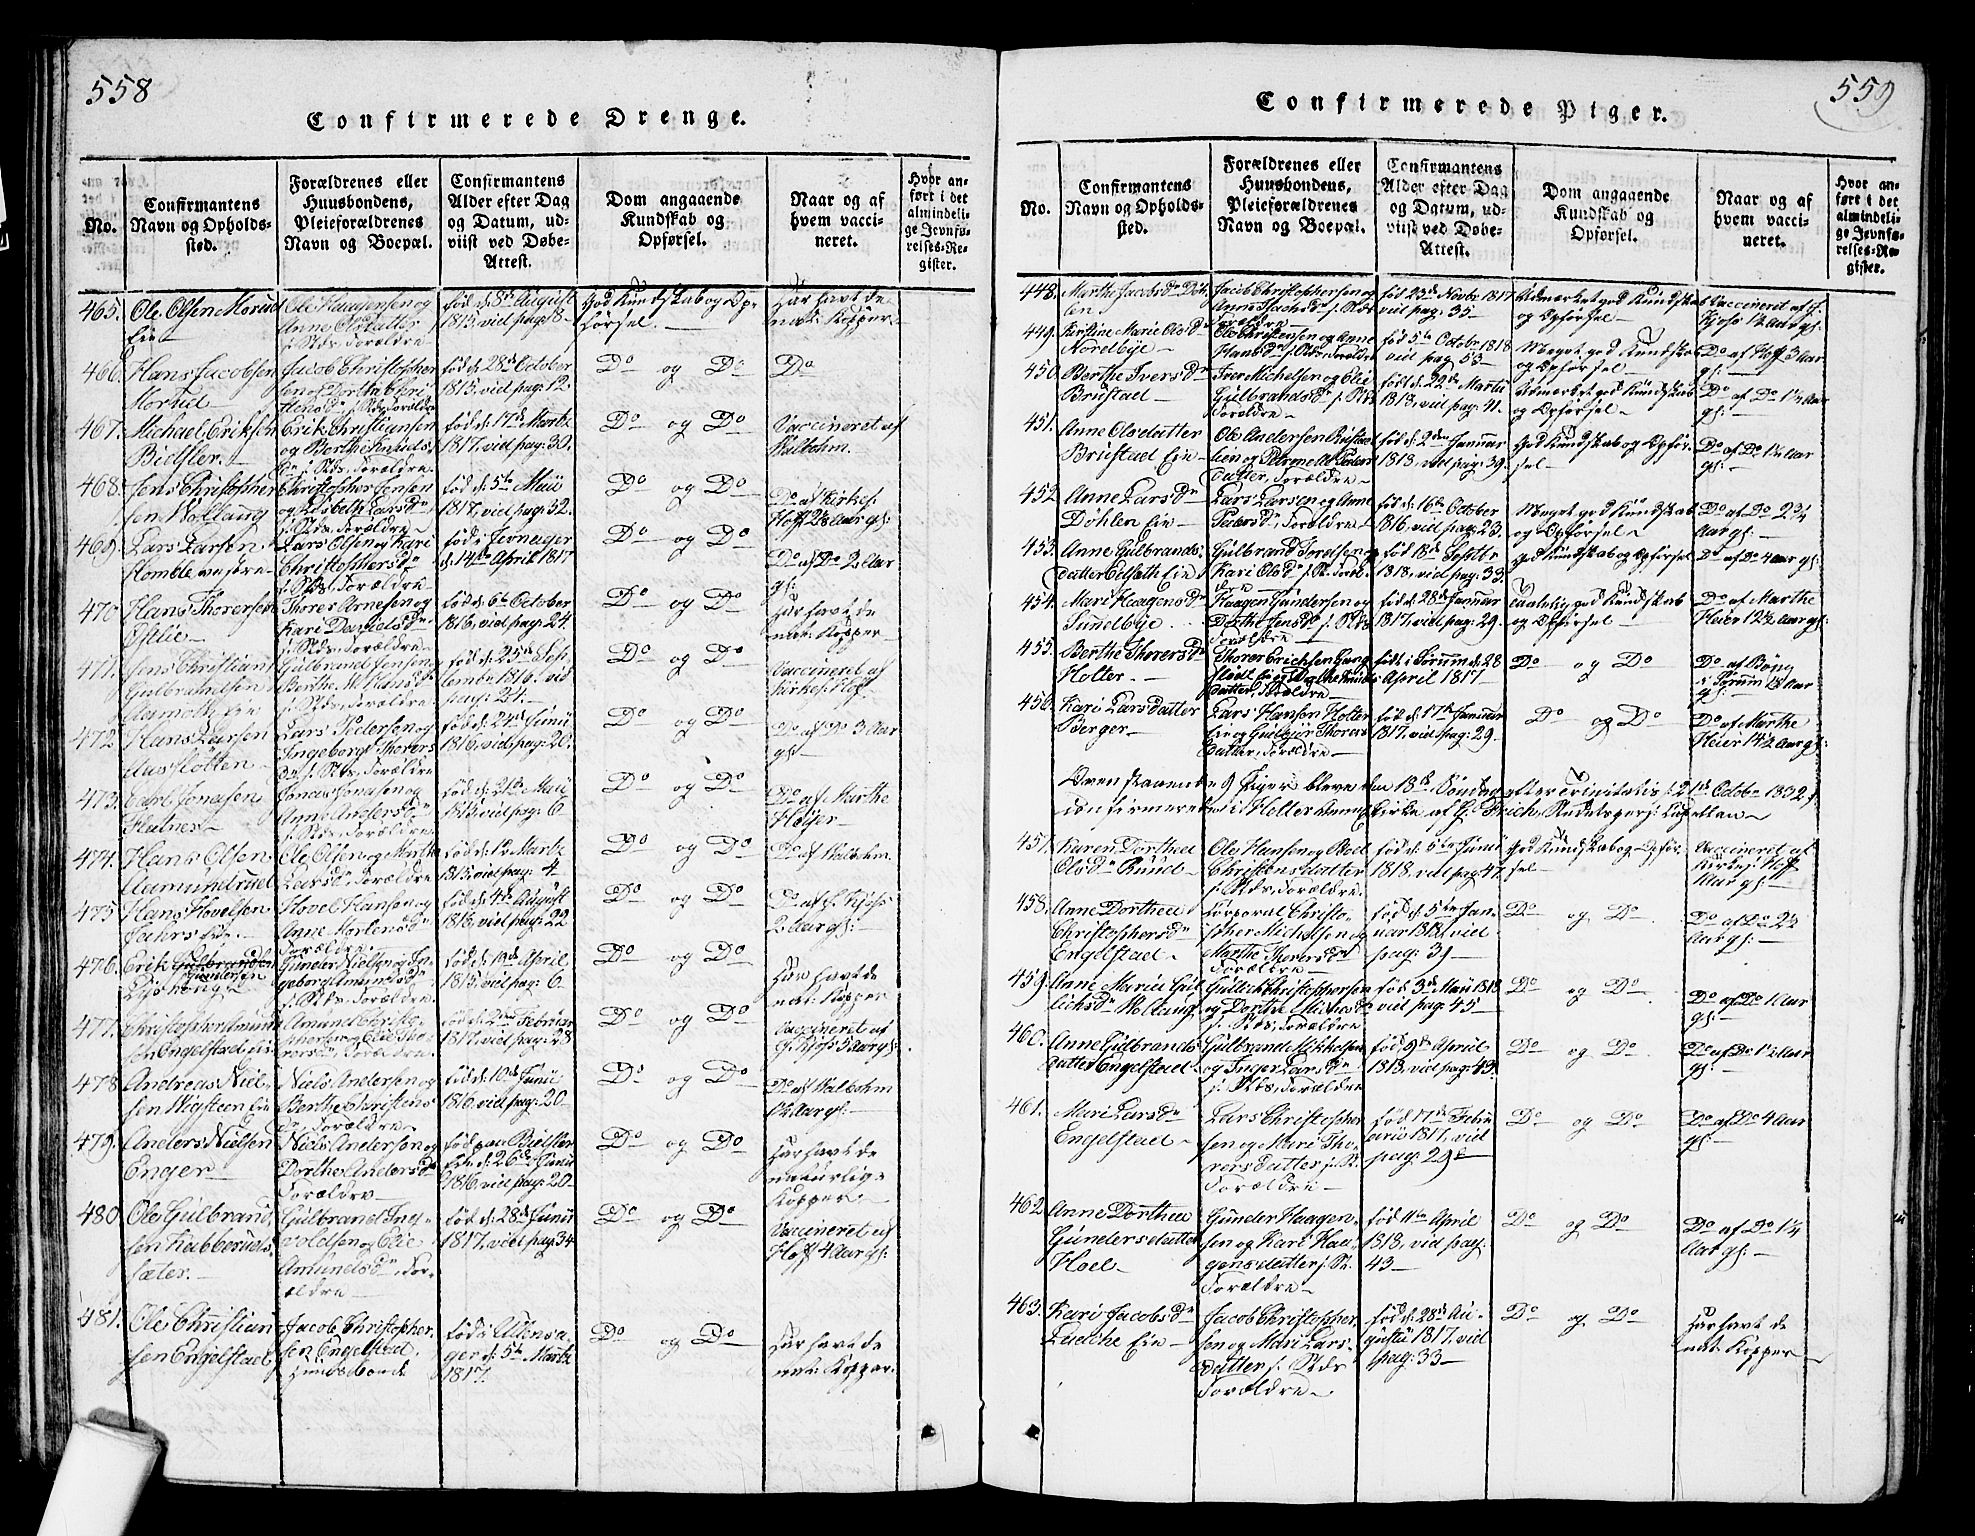 558
Confirmerede Drenge.
No.
Confirmantens
Navn og Opholds-
sted.
Forældrenes eller
Huusbondens,
Pleieforældrenes
Navn og Boepæl.
Confirmantens
Alder efter Dag
og Datum, ud-
viist ved Døbe-
Attest.
Dom angaaende
Kundskab og
Opførsel.
Naar og af
hvem vacci-
neret.
Hvor an-
ført i det
almindeli-
ge Jevnfø-
relses-Re-
gister.
465. Ole Olsen Morud
Eie
Ole Haagensen og
Anne Olsdatter
Forældre
fød d: 8de August
1815, vid pag: 8
God Kundskab og Op-
førsel.
Har havt de
nat: Kopper
466. Hans Jacobsen
Morud
Jacob Christopher
sen og Dorthe Chri
stensdr Forældre
fød d: 28de October
1815, vid pag: 12
Do og Do
Do
467. Michael Eriksen
Bielsler.
Erik Christiansen
og Borthe Knuds
Forældre
fød d: 17de Martz
1817, vid pag: 30.
Do og Do
Vaccineret af
Walbohm.
468. Jens Christopher
sen Woltung
Christopher Jensen
og Lisbeth Larsdr
Forældre
fød d: 5te Maii
1817, vid pag: 32.
Do og Do
Do af Kirkes:
Hoff 2½ Aar gl:
469. Lars Larsen
Homble vestre
Lars Olsen og Kari
Christophersdr
Forældre
fød i Jevnager
d: 14de April 1817
Do og Do
Do af Do 2 Aar
gl:
470 Hans Thorersen
Ostlie
Thorer Arnesen og
Kari Danielsdr
Forældre
fød d: 6te October
1816, vid pag: 24
Do og Do
Har havt de
nat: Kopper
471. Jens Christian
Gulbrandsen
Aamoth Eie
Gulbrand Jensen og
Berthe M. Hansdr
Forældre
fød d: 25de Sep
tembr 1816, vid
pag: 24.
Do og Do
Vaccineret af
Kirkes: Hoff
472 Hans Larsen
Aasslotten
Lars Pedersen og
Ingeborg Thorers
dr Forældre
fød d: 24de Junii
1816, vid pag: 20.
Do og Do
Do af Do 3 Aar
gl:
473. Carl Jonasen
Hatner
Jonas Jonasen og
Anne Andersdr
Forældre
fød d: 21de Maii
1815, vid pag: 6
Do og Do
Do af Marthe
Heier
474. Hans Olsen
Aamundrud
Ole Olsen og Marthe
Larsdr Forældre
fød d: 12 Martz
1815, vid pag: 4
Do og Do
Do af Walbohm.
475 Hans Hovelsen
Fahrs Eie
Hovel Hansen og
Anne Mortensdr
Forældre
fød d: 4de August
1816, vid pag: 22
Do og Do
Do af Kjoss
2 Aar gl:
476. Erik Gulbrandsen
Gundersen
Gunder Nielsen og In
geborg Amundsdr
Forældre
fød d: 19de April
1815, vid pag: 6
Do og Do
Har havt de
nat: Kopper
477. Christopher Amund
sen Engelstad Eie
Amund Christo-
phersen og Elie Tho
rersdr, Forældre
fød d: 2den Februar
1817, vid pag: 28
Do og Do
Vaccineret af
G: Kjoss 5 Aar gl:
478 Andreas Niel-
sen Wigsteen Eie
Niels Andersen og
Berthe Christens
dr Forældre
fød d: 10de Junii
1816, vid pag: 20
Do og Do
Do af Walbohm
1½ Aar gl:
479. Anders Nielsen
Enger
Niels Andersen og
Dorthe Andersdr
Forældre
fød paa Bielsler
Eie d: 26de Junii
1816, vid pag: 20
Do og Do
Har havt de
naturlige
Kopper
480 Ole Gulbrand
sen Kabberuds
sæter.
Gulbrand Ing-
voldsen og Elie
Amundsdr, For-
ældre
fød d: 28de Junii
1817, vid pag: 34
Do og Do
Vaccineret af
Hoff 4 Aar gl:
481. Ole Christian
sen Engelstad
Jacob Christopher
sen Engelstad,
Huusbonde
fød i Ullensa-
ger d: 5te Martz
1817.
Do og Do
Har havt de
nat: Kopper.
559
Confirmerede Piger.
No.
Confirmantens
Navn og Opholds-
sted.
Forældrenes eller
Huusbondens,
Pleieforældrenes
Navn og Boepæl.
Confirmantens
Alder efter Dag
og Datum, ud-
viist ved Døbe-
Attest.
Dom angaaende
Kundskab og
Opførsel.
Naar og af
hvem vacci-
neret.
Hvor an-
ført i det
almindeli-
ge Jevnfø-
relses-Re-
gister.
448. Marthe Jacobsdr Døh
len
Jacob Christophersen og
Anne Isachsdr
Forældre
fød 23de Novbr 1817
vid pag: 35
Udmærket god Kundskab
og Opførsel
Vaccineret af G:
Kjoss 1½ Aar gl:
449. Kirstine Marie Olsdr
Nordbye
Ole Christensen og Anne
Hansdr Forældre
fød 5te Octobr 1818
vid pag 53
Meget god Kundskab
og Opførsel
Do af Hoff 3 Aar
gl:
450. Berthe Iversdr
Brustad
Iver Michelsen og Elie
Gulbrandsdr
Forældre
fød d: 22de Martii
1818, vid pag: 41.
Udmærket god Kundskab
og Opførsel
Do af Do 1½ Aar
gl:
451. Anne Olsdatter
Brustad Eie
Ole Andersen Rustad
Eie og Petronelle Peders
datter, Forældre
fød d: 2den Januar
1818, vid pag: 39
God Kundskab og Opfør-
sel
Do af Do 1½ Aar
gl:
452 Anne Larsdr
Døhlen Eie
Lars Larsen og Anne
Pedersdr, Forældre
fød d: 16de October
1816, vid pag: 23.
Meget god Kundskab
og Opførsel
Do af Do 2¾
Aar gl:
453. Anne Gulbrands
datter Eie
Gulbrand Tordsen og
Kari Olsdr
fød 18de Septbr
1818, vid pag: 33
god Kundskab og Opførsel
Do af Do 4 Aar gl:
454. Mari Haagensdr
Sundbye
Haagen Gundersen og
Dorthe Jensdr
Forældre
fød d: 28de Januar
1817, vid pag: 29.
Taalelig god Kundskab
og Opførsel
Do af Marthe
Heier 12½ Aar gl:
455. Berthe Thorersdr
Holter
Thorer Erichsen
datter, Forældre
fød i Sørum d: 28
April 1817
Do og Do
Do af Bøng
i Sørum 1½ Aar
gl:
456. Kari Larsdatter
Berger
Lars Hansen Holter
Eie og Gulbjør Thorers
datter, Forældre
fød d: 17de Januar
1817, vid pag: 29
Do og Do
Do af Marthe
Heier 14½ Aar gl:
Ovenstaaende 9 Piger bleve den 18de Søndag efter Trinitatis d: 21de Octobr 1832
confirmerede i Heller Annex Kirke af H: Frich, Residerende Capellan
457. Karen Dorthea
Olsdr Ruud
Ole Hansen og Boel
Christensdatter
Forældre
fød d: 5te Junii
1818, vid pag: 47.
god Kundskab og Opfør-
sel
Vaccineret af
Kirkes: Hoff
Aar gl:
458. Anne Dorthea
Christophersdr
Engelstad
Corporal Christo-
pher Michelsen og
Marthe Thorersdr
Forældre
fød d: 5te Jan-
uar 1818, vid
pag: 39
Do og Do
Do af Do 2½
Aar gl:
459. Anne Marie Gul
lichsdr Woltung
Gullich Christophersen
og Dorthe Michelsdr
Forældre
fød 3de Maii 1818
vid pag: 45
Do og Do
Do af Do 1 Aar
gl:
460. Anne Gulbrands
datter Engelstad
Gulbrand Mikkelsen
og Inger Larsdr
Forældre
fød 9de April
1818, vid pag: 43.
Do og Do
Do af Do 1½ Aar
gl:
461. Mari Larsdr
Engelstad
Lars Christopher
sen og Kari Tho-
rersdatter
Forældre
fød d: 17de Febru
arii 1817, vid
pag: 29
Do og Do
Do af Do 4 Aar
gl:
462 Anne Dorthea
Gundersdatter
Hoel
Gunder Haagen-
sen og Kari Haa-
gensdatter
Forældre
fød 11te April
1818, vid pag:
43
Do og Do
Do af Do 1½
Aar gl:
463. Kari Jacobsdr
Ludche Eie
Jacob Christopher
sen og Mari Lars-
datter
Forældre
fød d: 28de Au-
gustii 1817, vid
pag: 33
Do og Do
Har havt de
nat: Kopper